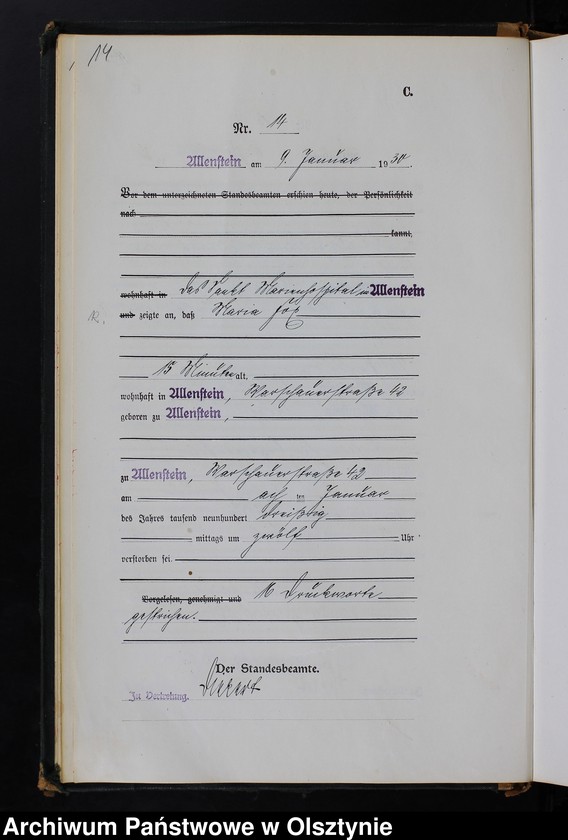 14
C.
Nr. 14
Allenstein am 9. Januar 1930.
Vor dem unterzeichneten Standesbeamten erschien heute, der Persönlichkeit
nach
kannt,
wohnhaft in Das Sankt Marienhospital in Allenstein
und zeigte an, daß Maria Fox
15 Minuten alt,
wohnhaft in Allenstein, Warschauerstraße 42
geboren zu Allenstein,
zu Allenstein, Warschauerstraße 42
am acht ten Januar
des Jahres tausend neunhundert dreißig
mittags um zwölf Uhr
verstorben sei.
Vorgelesen, genehmigt und 16 Druckworte
gestrichen.
Der Standesbeamte.
In Vertretung.
Archiwum Państwowe w Olsztynie